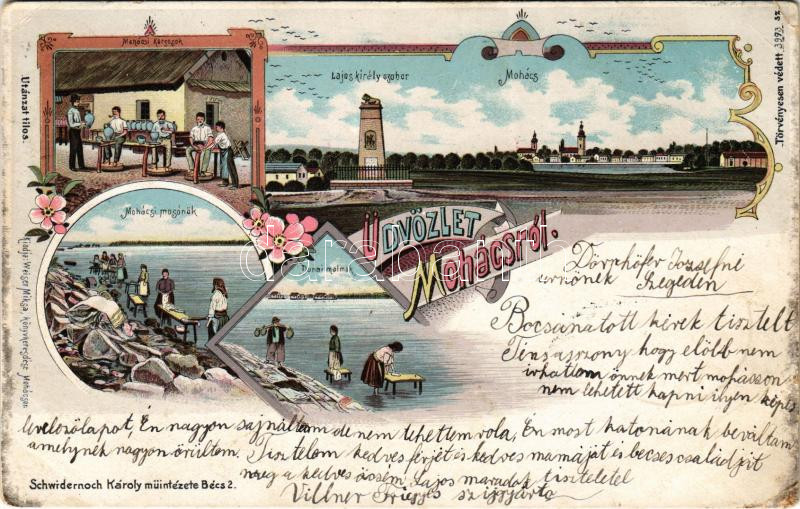 Mohácsi Korsósok
Lajos király szobor
Mohács
Utánzat tilos.
Törvényesen védett 3993 sz
Mohácsi mosónők
Dunai malmok
ÜDVÖZLET
MOHÁCSRÓL.
Kiadja Weiser Miksa könyvkereskedése Mohácson
Dörrhöfer Jozsefné
urnőnek Szegedin
Bocsánatott kérek tisztelt
Tinsasszony hogy elöbb nem
irhattam önnek mert mohácson
nem lehetett kapni ilyen képes
levelezölapot, Én nagyon sajnáltam de nem tehettem rola, Én most katonának beváltam
amelynek nagyon örültem. Tisztelem kedves férjét és kedves mamáját és becses családját
meg a kedves öcsém Lajos maradok tisztelettel
Villner szijjgyártó
Schwidernoch Károly müintézete Bécs 2.